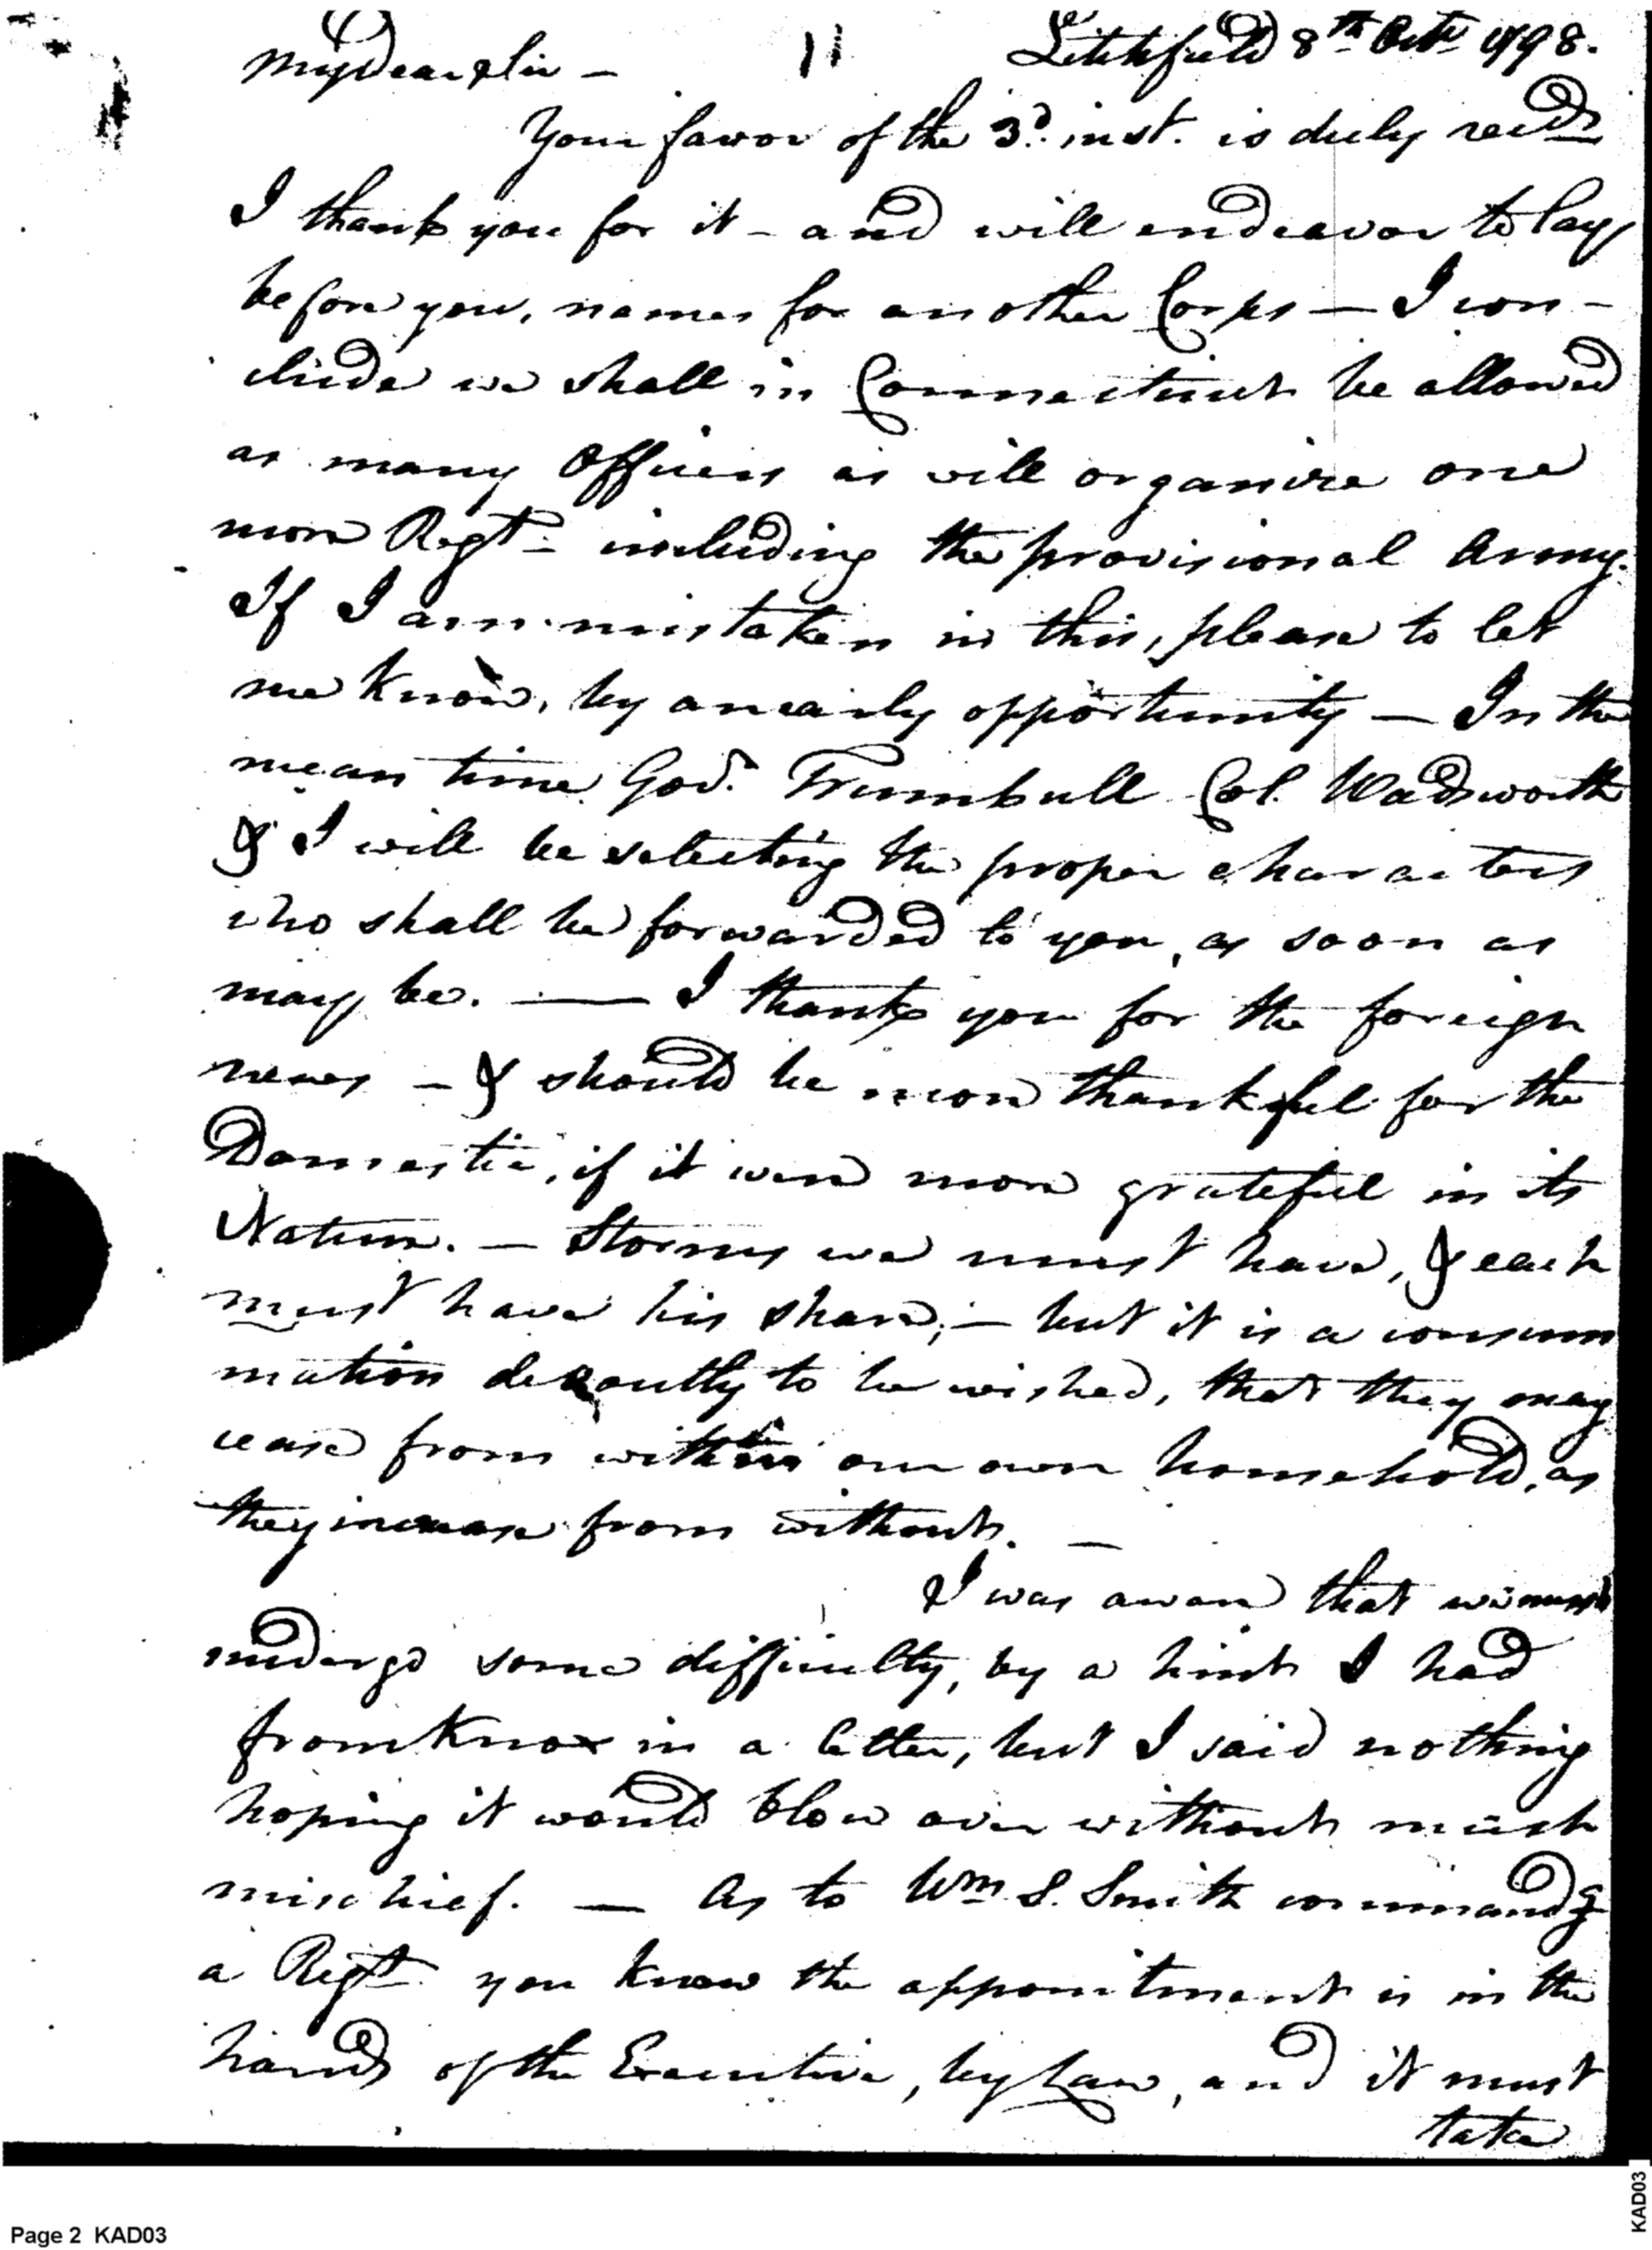 11
Litchfield 8th Octr 1798.
My Dear Sir —
Your favor of the 3d. inst. is duly recd
I thank you for it - and will endeavor to lay
before you, names for another Corps — I con-
clude we shall in Connecticut be allowed
as many Officers as will organize one
more Regt. including the provisional Army.
If I am mistaken in this, please to let
me know, by an early opportunity — In the
mean time Gov. Trumbull Col. Wadsworth
& I will be selecting the proper characters
who shall be forwarded to you, as soon as
may be. — I thank you for the foreign
news - & should be more thankful for the
Domestic, if it were more grateful in its
Nature. — Storms we must have, & each
must have his share; — but it is a consum
mation devoutly to be wished, that they may
cease from within our own household, as
they increase from without. —
I was aware that we must
undergo some difficulty, by a hint I had
from Knox in a letter, but I said nothing
hoping it would blow over without much
mischief. — As to Wm S. Smith commandg
a Regt you know the appointment is in the
hands of the Executive, by Law, and it must
take
Page 2 KAD03
KAD03